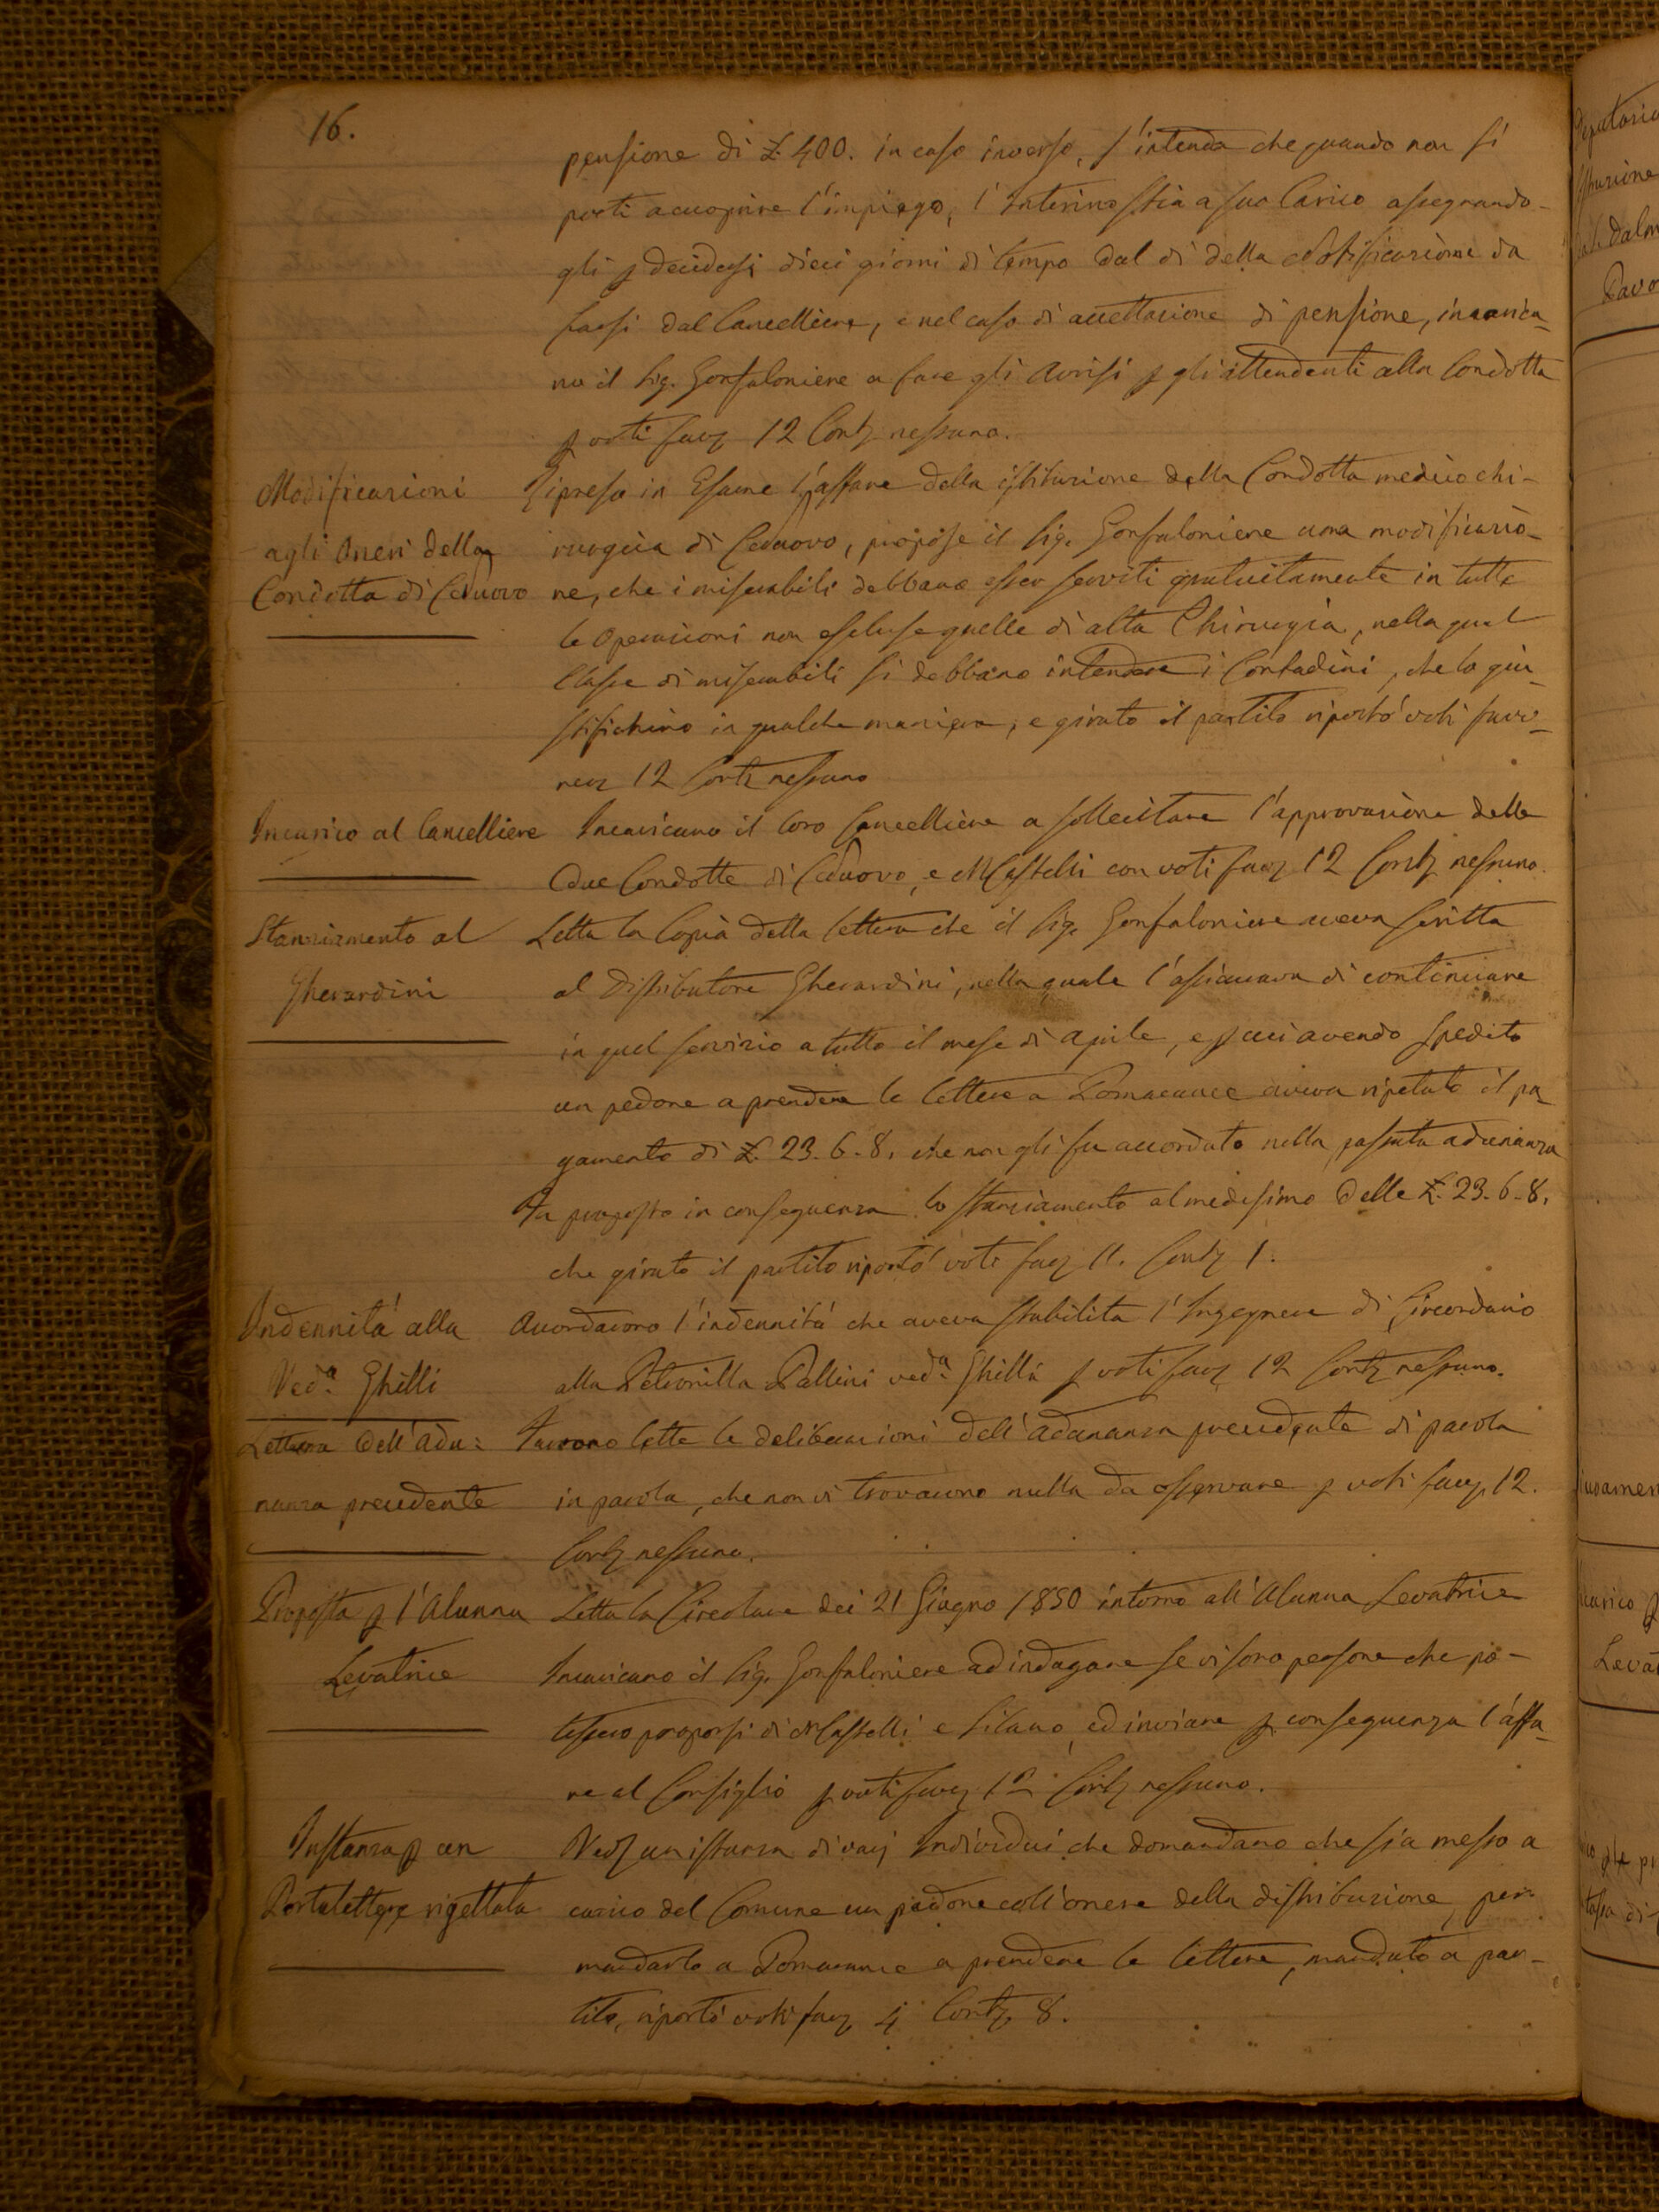 16.
pensione di £. 400. in caso inverso, s'intenda che quando non si
porti a cuoprire l'impiego, l'Interino stia a suo Carico assegnando-
gli p decidersi dieci giorni di tempo dal dì della Notificazione da
farsi dal Cancelliere, e nel caso di accettazione di pensione, incarica-
no il Sig. Gonfaloniere a fare gli Avvisi p gli attendenti alla Condotta
p voti fav. 12 Cont. nessuno.
Modificazioni
agli Oneri della
Condotta di
Ripreso in Esame l'affare della istituzione della Condotta medico chi-
rurgica di propose il Sig. Gonfaloniere una modificazio-
ne, che i miserabili debbano esser serviti gratuitamente in tutte
le Operazioni non escluse quelle di alta Chirurgia, nella qual
Classe di miserabili si debbano intendere i Contadini, che lo giu-
stifichino in qualche maniera, e girato il partito riportò voti favo-
rev. 12 Cont. nessuno
Incarico al Cancelliere
Incaricano il loro Cancelliere a sollecitare l'approvazione delle
due Condotte di e M Castelli con voti fav. 12 Cont. nessuno.
Stanziamento al
Gherardini
Letta la Copia della lettera che il Sig. Gonfaloniere aveva scritta
al Distributore Gherardini, nella quale l'assicurava di continuare
in quel servizio a tutto il mese di Aprile, e p cui avendo spedito
un pedone a prendere le lettere a Pomarance aveva ripetuto il pa-
gamento di £. 23. 6. 8. che non gli fu accordato nella passata adunanza
Fu proposto in conseguenza lo stanziamento al medesimo delle £. 23. 6. 8.
che girato il partito riportò voti fav. 11. Cont. 1.
Indennità alla
Ved.a Ghilli
Accordarono l'indennità che aveva stabilita l'Ingegnere di Circondario
alla Petronilla Pallini ved.a Ghilli p voti fav. 12 Cont. nessuno.
Lettura dell'Adu=
nanza precedente
Furono lette le deliberazioni dell'adunanza precedente di parola
in parola, che non vi trovarono nulla da osservare p voti fav. 12.
Cont. nessuno.
Proposta p l'Alunna
Levatrice
Letta la Circolare dei 21 Giugno 1850 intorno all'Alunna Levatrice
Incaricano il Sig. Gonfaloniere ad indagare se vi sono persone che po-
tessero proporsi di M Castelli e Silano, ed inviare p conseguenza l'affa-
re al Consiglio p voti fav. 12 Cont. nessuno.
Instanza p un
Portalettere rigettata
Ved. un istanza di varj Individui che domandano che sia messo a
carico del Comune un pedone coll'onere della distribuzione, per
mandarlo a Pomarance a prendere le lettere, mandato a par-
tito, riportò voti fav. 4 Cont. 8.